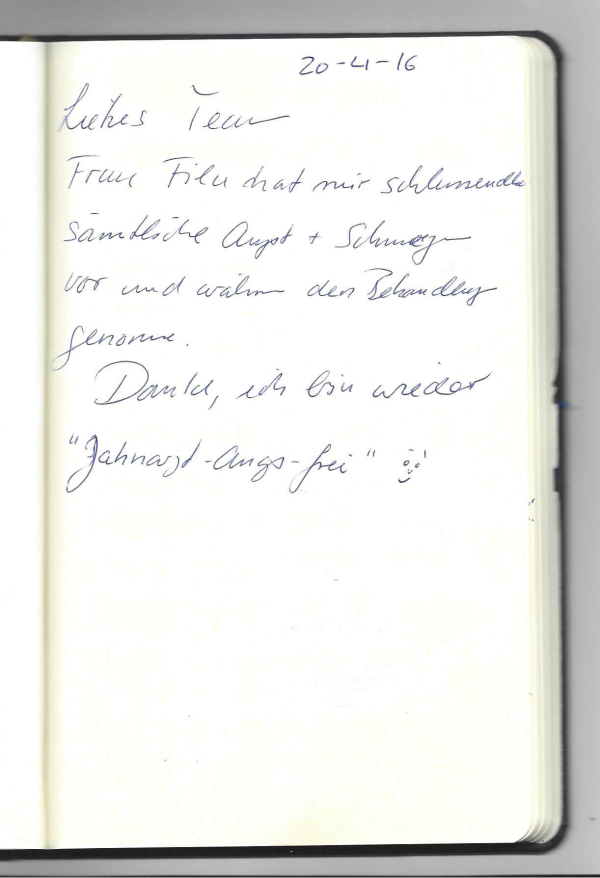 20-4-16
Liebes Team
Frau hat mir
sämtliche Angst + Schmerzen
vor und währ der Behandlung
genomme.
Danke, ich bin wieder
"Zahnarzt-Angs-frei"